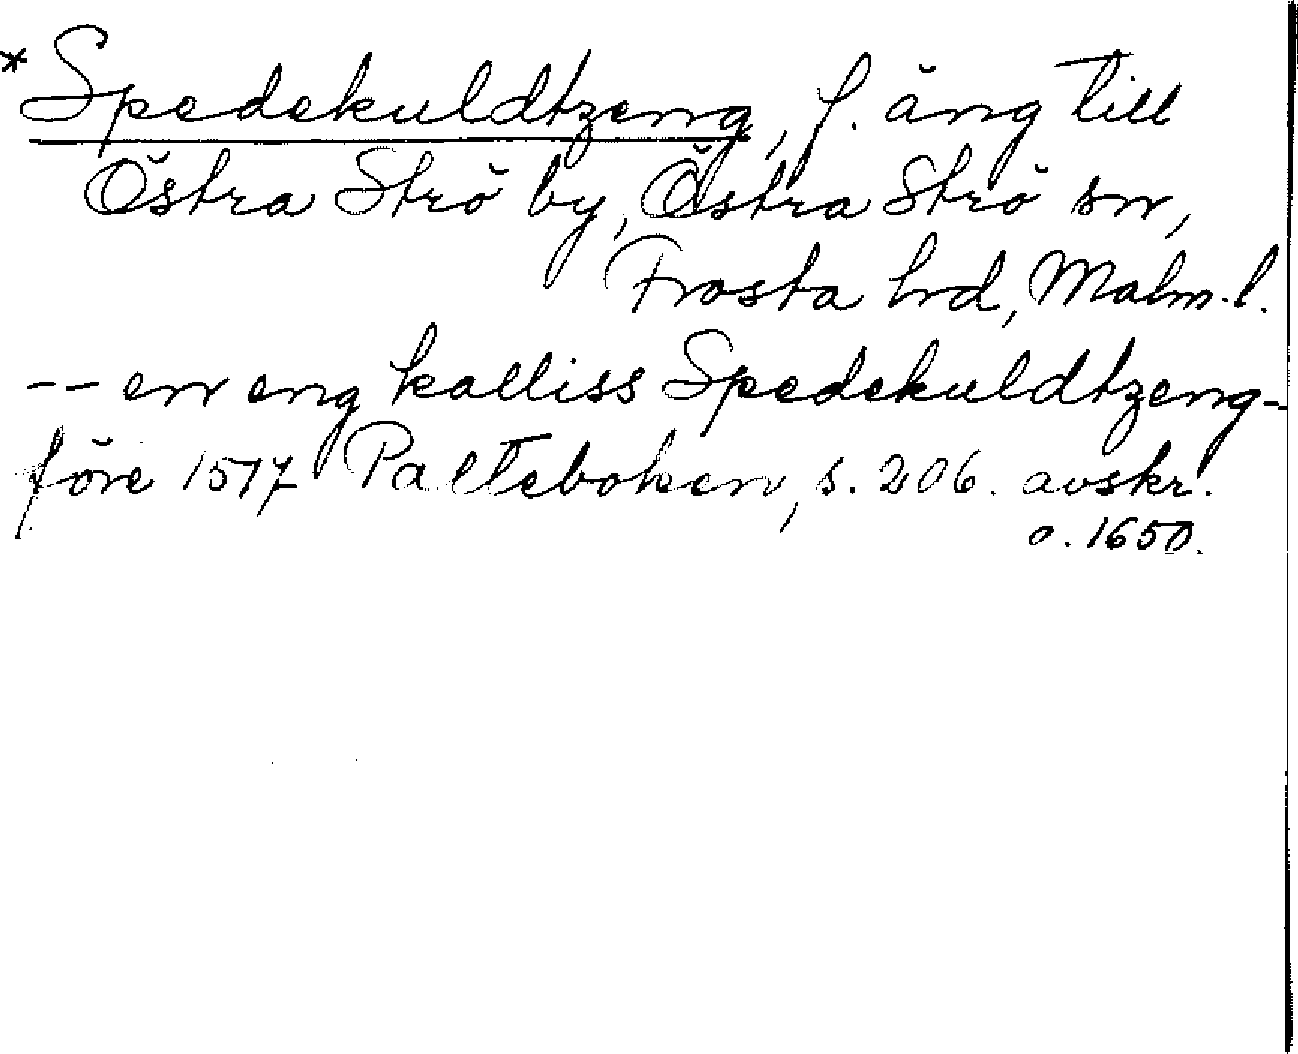 * Spedekuldtzeng, f. äng till
Östra Strö by, Östra Strö sn,
Frosta hd, Malm. l.
-- en eng kalliss Spedekuldtzeng -
före 1517 Palteboken, s. 206. avskr.
o. 1650.